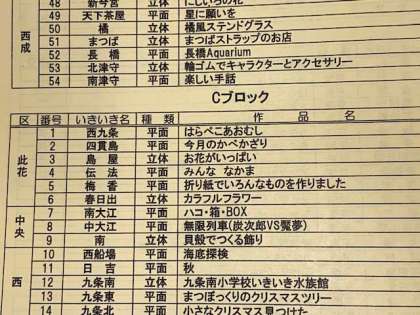 48 新今宮 立体 にじいろの花
49 天下茶屋 平面 星に願いを
50 橘 立体 橘風ステンドグラス
西成 51 まつば 立体 まつばストラップのお店
52 長橋 平面 長橋Aquarium
53 北津守 立体 輪ゴムでキャラクターとアクセサリー
54 南津守 平面 楽しい手話
Cブロック
区 番号 いきいき名 種類 作品名
1 西九条 平面 はらぺこあおむし
2 四貫島 平面 今月のかべかざり
此花 3 島屋 立体 お花がいっぱい
4 伝法 平面 みんな なかま
5 梅香 平面 折り紙でいろんなものを作りました
6 春日出 立体 カラフルフラワー
7 南大江 平面 ハコ・箱・BOX
中央 8 中大江 平面 無限列車(炭次郎VS魘夢)
9 南 立体 貝殻でつくる飾り
10 西船場 平面 海底探検
11 日吉 平面 秋
西 12 九条南 立体 九条南小学校いきいき水族館
13 九条東 平面 まつぼっくりのクリスマスツリー
14 九条北 平面 小さなクリスマス見つけた